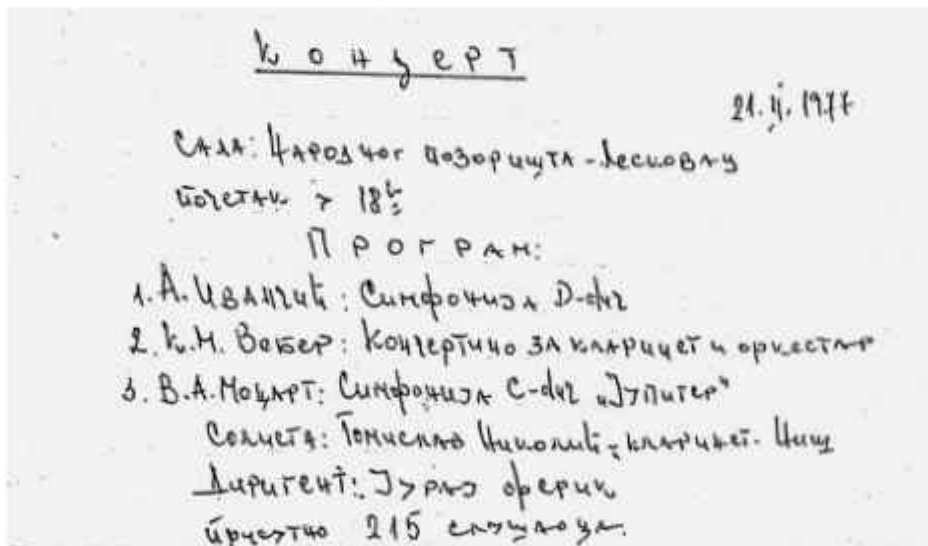 Концерт
21. II. 1977
Сала: Народног позоришта - Лесковац
почетак у 18h
Програм:
1. А. Иванчић: Симфонија D-dur
2. К.М. Вебер: Концертино за кларинет и оркестар
3. В.А. Моцарт: Симфонија C-dur „Јупитер"
Солиста: Томислав Николић - кларинет - Ниш
Диригент: Јурај Ферик
присутно 215 слушаоца.